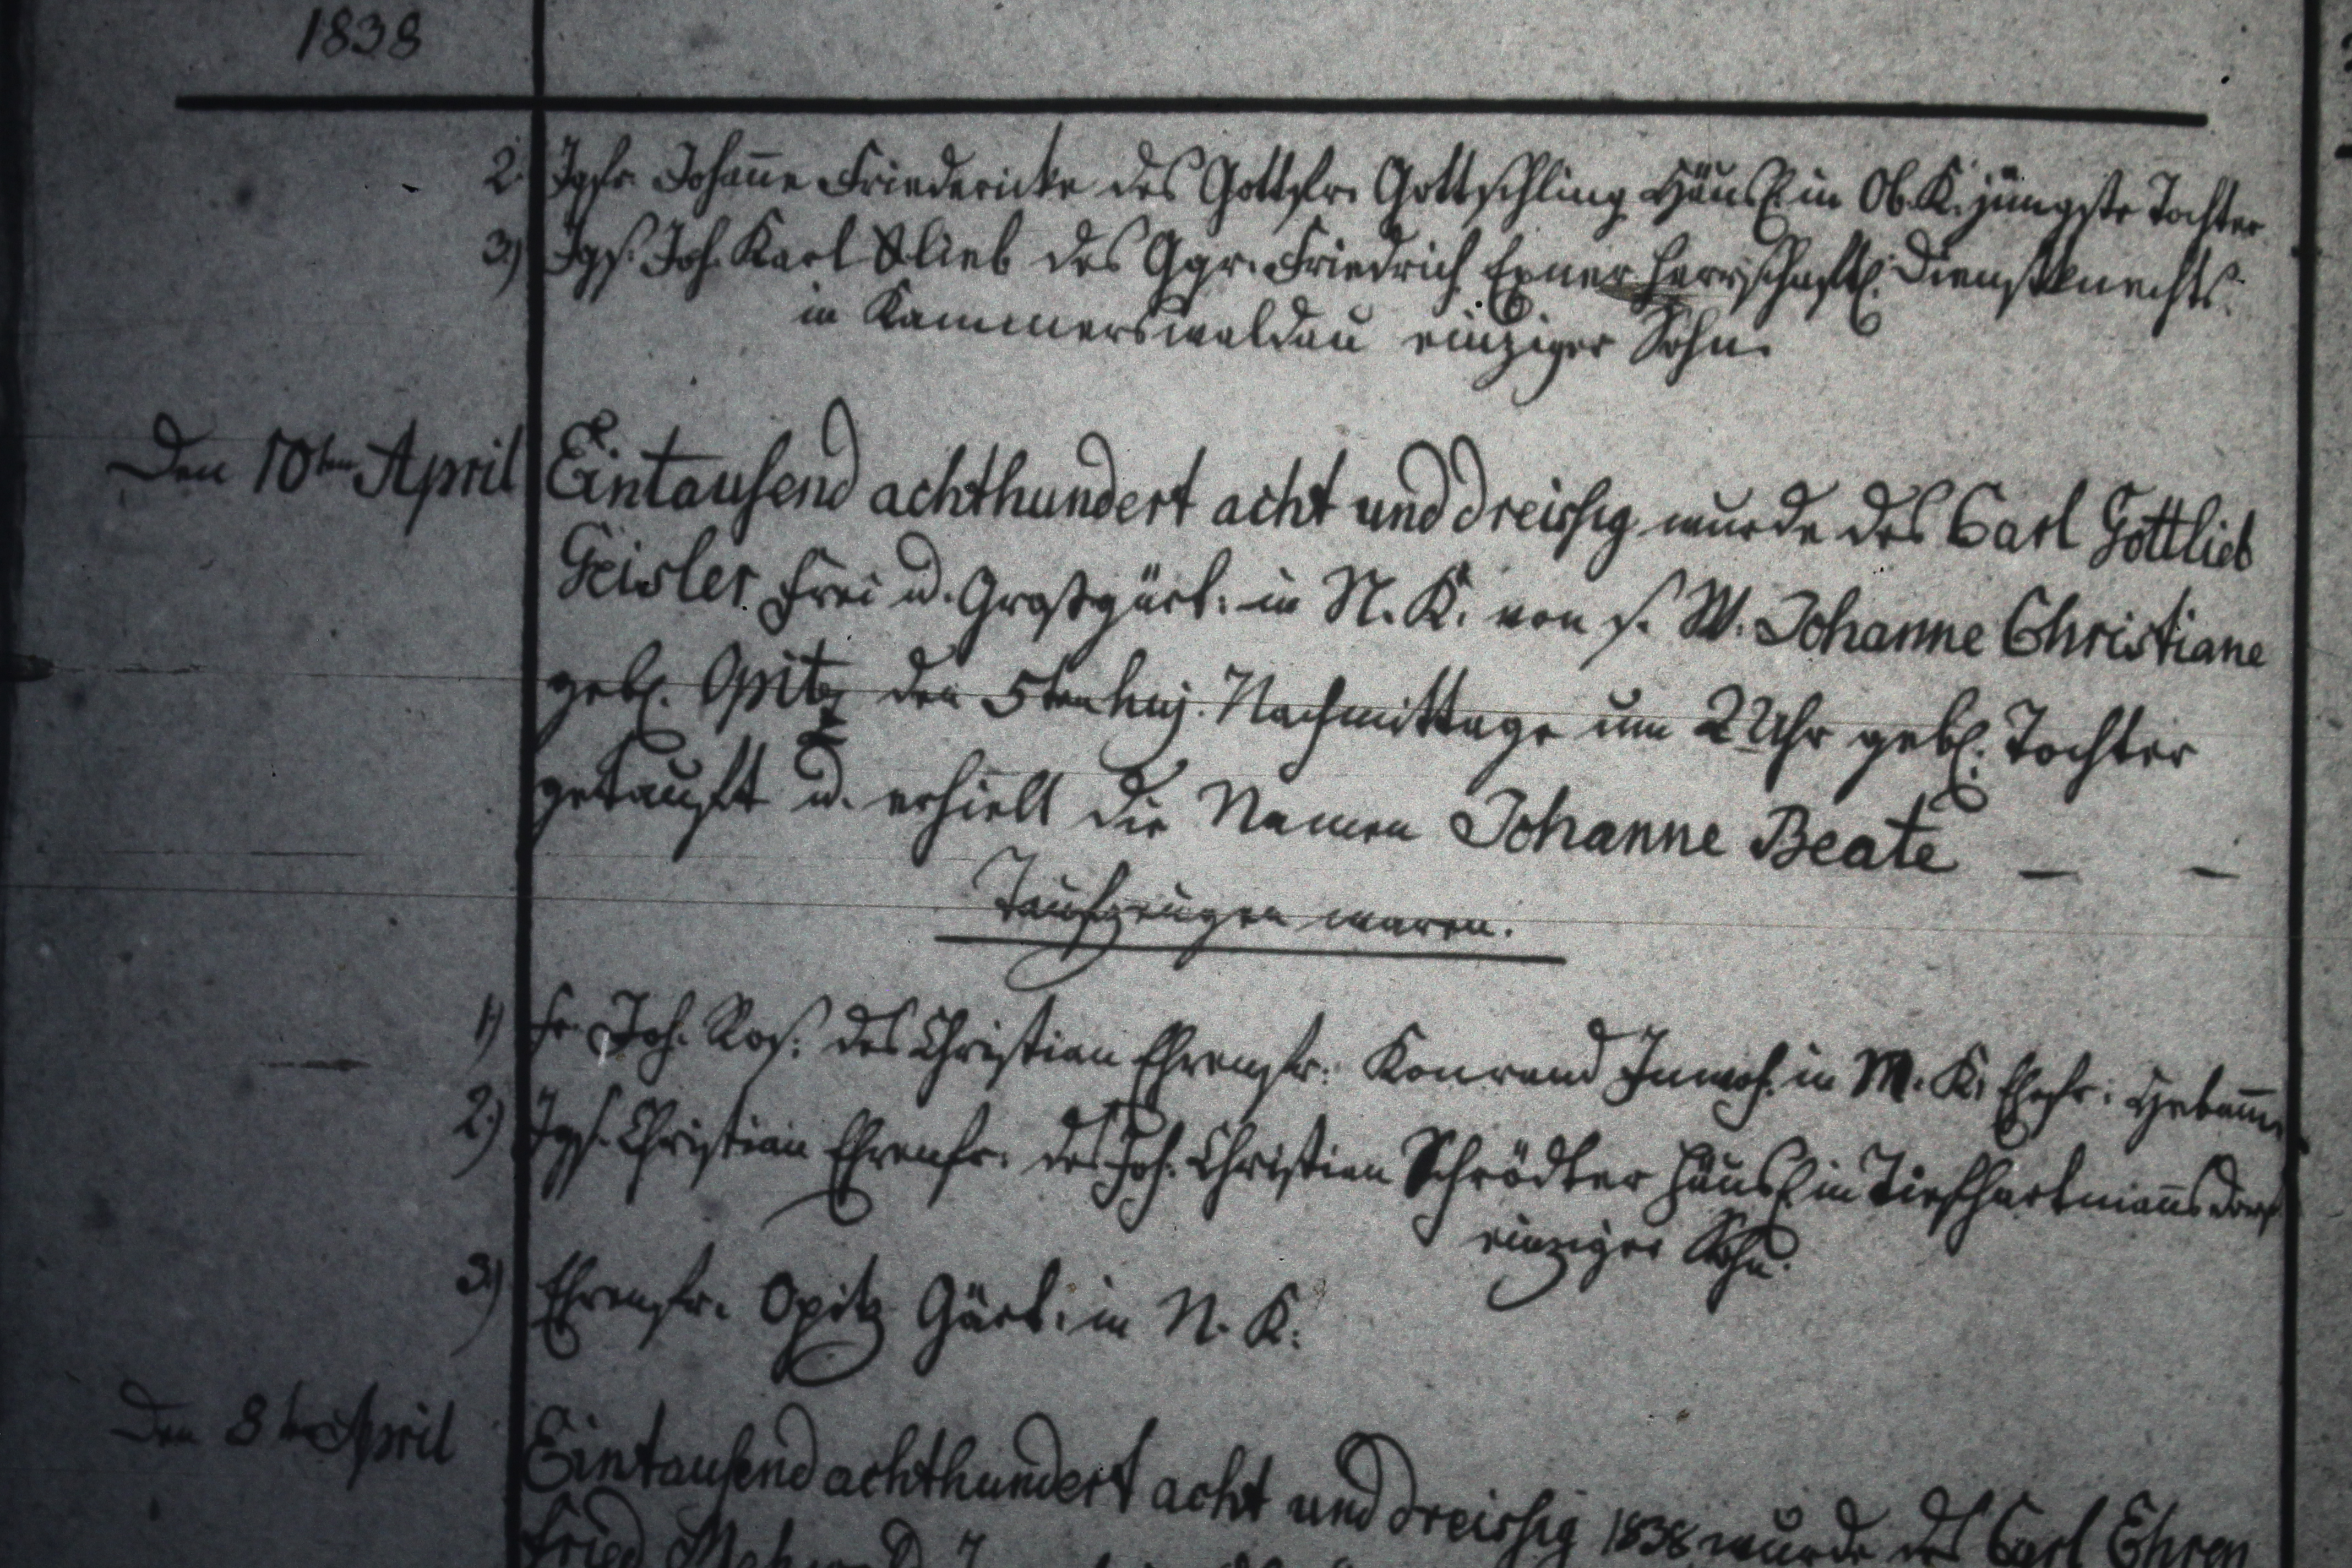 1838
2. Jgfr. Johan̄e Friedericke des Gottfr. Gottschling Häusl. in Ob. K. jüngste Tochter
3.) Jgs. Joh. Karl Glieb des Ggr. Friedrich Exner herrschaftl. Dienstknechts
in Kammerswaldau einziger Sohn.
Den 10ten April Eintausend achthundert acht und dreissig wurde des Carl Gottlieb
Geisler Frei u. Großgärt. in N. K. von s. W. Johanne Christiane
gebl. Opitz den 5ten huj. Nachmittage um 2 Uhr gebl. Tochter
getauft u. erhielt die Namen Johanne Beate — —
Taufzeugen waren.
1) Fr. Joh. Ros. des Christian Ehrenfr. Konrad Inwoh. in M. K. Ehefr. Hebam̄e
2.) Jgs. Christian Ehrenfr. des Joh. Christian Schrödter Häusl. in Tiefhartman̄sdorf
einziger Sohn.
3.) Ehrenfr. Opitz Gärt. in N. K.
Den 8ten April Eintausend achthundert acht und dreissig 1838 wurde des Carl Ehren
fried